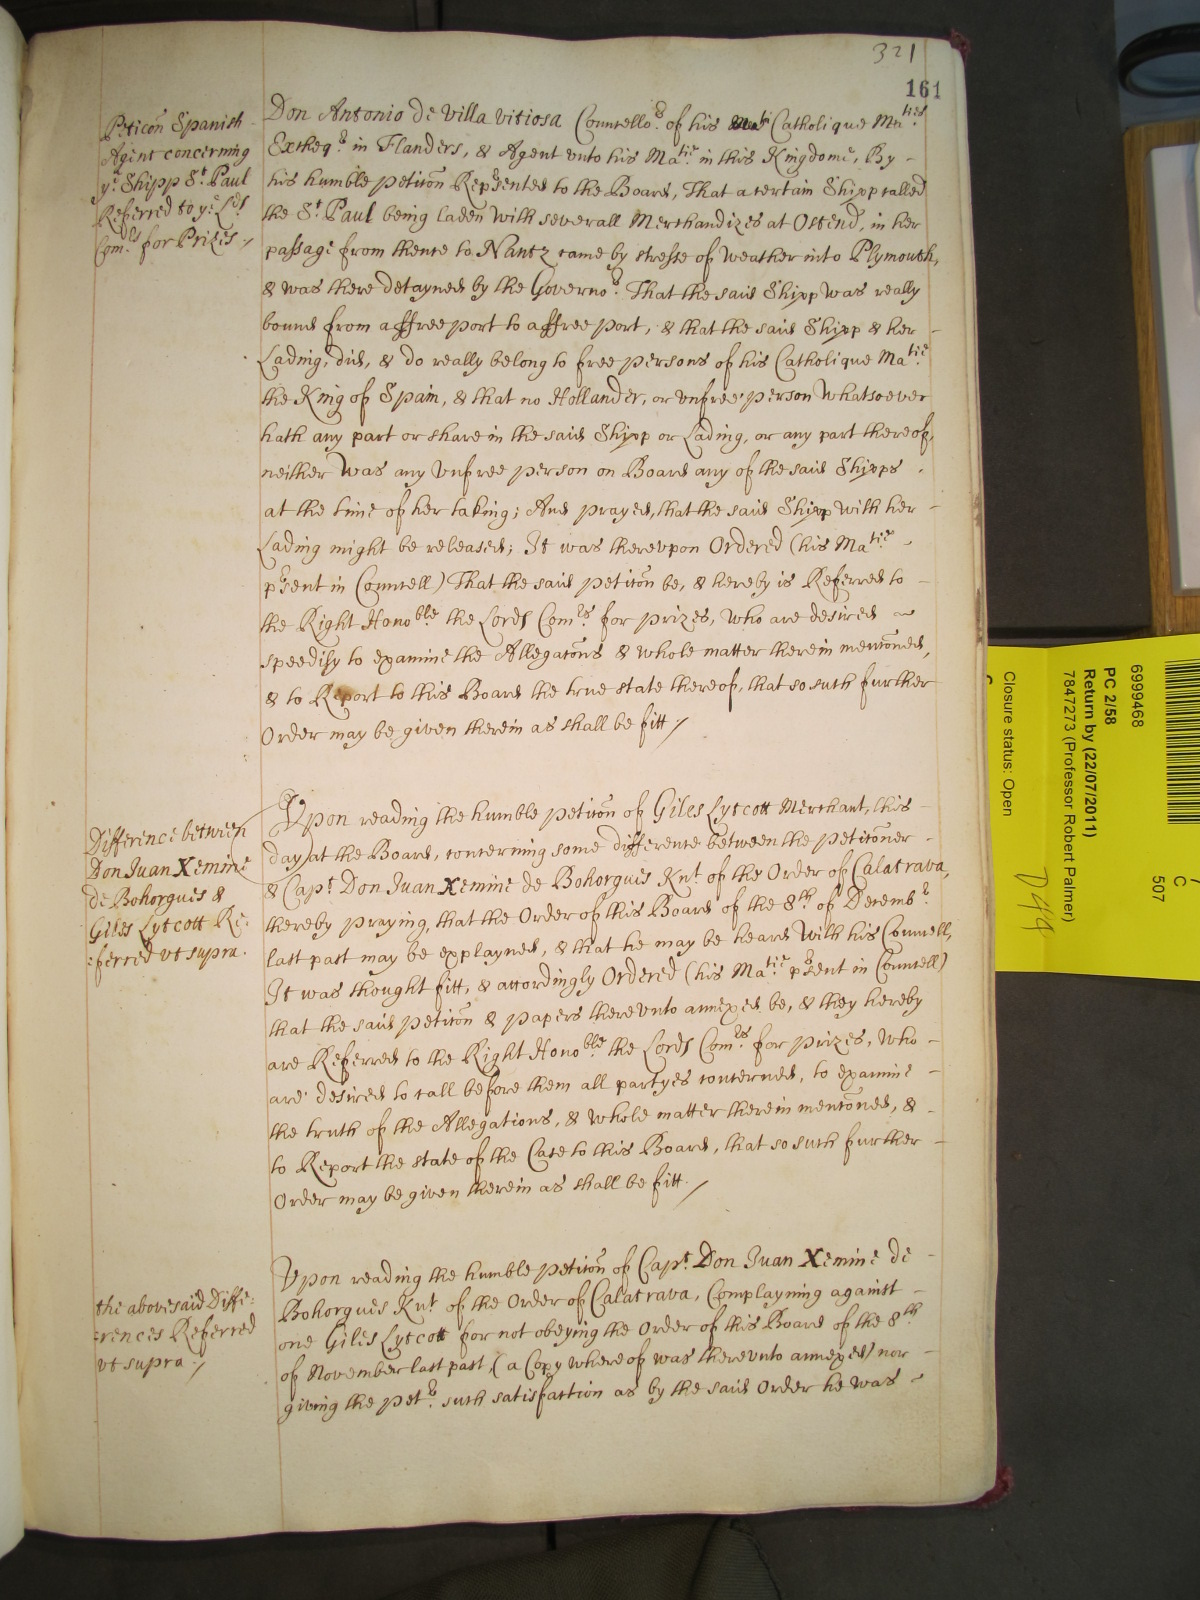 321
161
Peticon Spanish
Agent concerning
ye Shipp St Paul
Referred to ye Lds
Comrs for Prizes /
Don Antonio de villa vitiosa Councellor of his Catholique Maties
Exchequr in Flanders, & Agent vnto his Matie in this Kingdome, By -
his humble peticon Represented to the Board, That a certain Shipp called
the St Paul being laden with severall Merchandizes at Ostend, in her
passage from thence to Nantz came by stresse of weather into Plymouth,
& was there detayned by the Governor. That the said Shipp was really
bound from a ffree port to a ffree port, & that the said Shipp & her -
Lading, did, & do really belong to free persons of his Catholique Matie
the King of Spain, & that no Hollander, or vnfree person Whatsoever
hath any part or share in the said Shipp or Lading, or any part thereof,
neither was any vnfree person on Board any of the said Shipps -
at the time of her taking; And prayed, that the said Shipp with her -
Lading might be released; It was therevpon Ordered (his Matie -
present in Councell) That the said peticon be, & hereby is Referred to -
the Right Honoble the Lords Comrs for prizes, who are desired ~
speedily to examine the Allegacons & whole matter therein menconed,
& to Report to this Board the true state thereof, that so such further
Order may be given therein as shall be fitt /
Difference between
Don Juan Xemine
de Bohorgues &
Giles Lytcott Re:
:ferred vt supra.
Vpon reading the humble peticon of Giles Lytcott Merchant, this -
day at the Board, concerning some difference between the peticoner -
& Capt Don Juan Xemine de Bohorgues Knt of the Order of Calatrava,
thereby praying, that the Order of this Board of the 8th of Decembr
last past may be explayned, & that he may be heard with his Councell,
It was thought fitt, & accordingly Ordered (his Matie present in Councell)
that the said peticon & papers therevnto annexed be, & they hereby
are Referred to the Right Honoble the Lords Comrs for prizes, who -
are desired to call before them all partyes concerned, to examine -
the truth of the Allegations, & whole matter therein menconed, & -
to Report the state of the Case to this Board, that so such further -
Order may be given therein as shall be fitt. /
the abovesaid Diffe:
:rences Referred
vt supra /
Vpon reading the humble peticon of Capt Don Juan Xemine de -
Bohorgues Knt of the Order of Calatrava, Complayning against -
one Giles Lytcott for not obeying the Order of this Board of the 8th
of November last past, (a Copy whereof was therevnto annexed) nor -
giving the petr such satisfaction as by the said Order he was -
6999468
PC 2/58
Return by (22/07/2011)
7847273 (Professor Robert Palmer)
Closure status: Open
C
507
D44